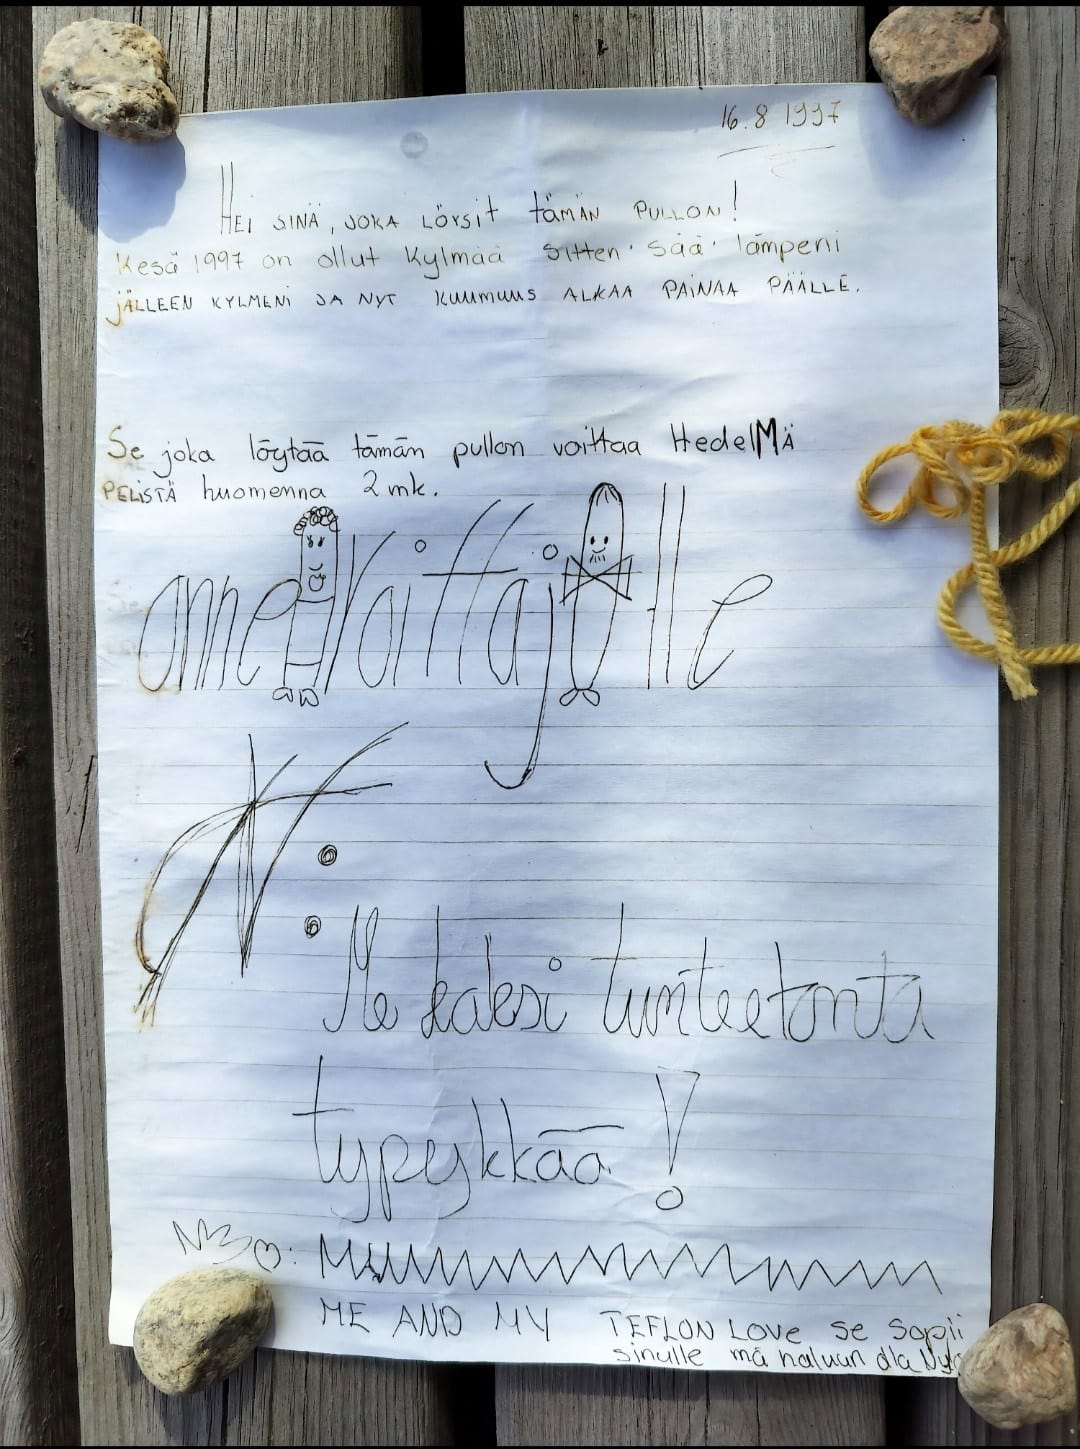 16.8 1997
HEI SINÄ, JOKA LÖYSIT tÄMÄN PULLON!
Kesä 1997 on ollut Kylmää sitten sää lämpeni
JÄLLEEN KYLMENI JA NYT kuumuus ALKAA PAINAA PÄÄLLE.
Se joka löytää tämän pullon voittaa HedelMä
PELISTÄ huomenna 2 mk.
Voittajalle
Me kaksi tunteetonta
typeykkää!
ME AND MY TEFLON LOVE se sopii
sinulle mä haluun olla